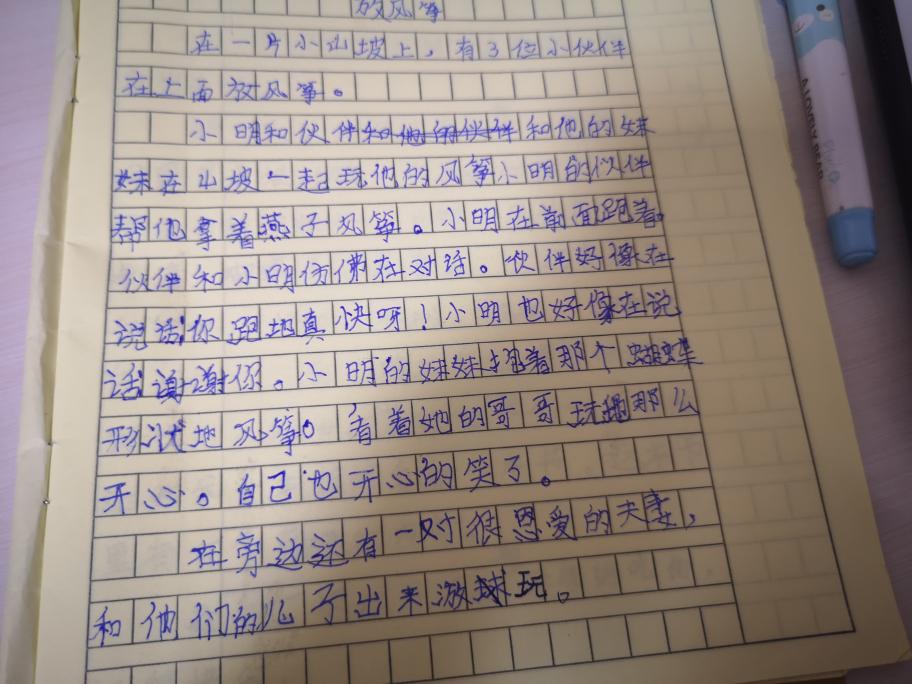 放风筝
在一片小山坡上，有3位小伙伴
在上面放风筝。
小明和伙伴和他的伙伴和他的妹
妹在山坡一起玩他的风筝小明的伙伴
帮他拿着燕子风筝。小明在前面跑着。
伙伴和小明仿佛在对话。伙伴好像在
说话你跑地真快呀！小明也好像在说
话谢谢你。小明的妹妹抱着那个蝴蝶
形状地风筝。看着她的哥哥玩得那么
开心。自己也开心的笑了。
在旁边还有一对很恩爱的夫妻，
和他们的儿子出来游玩。
A LOVELY BEAR